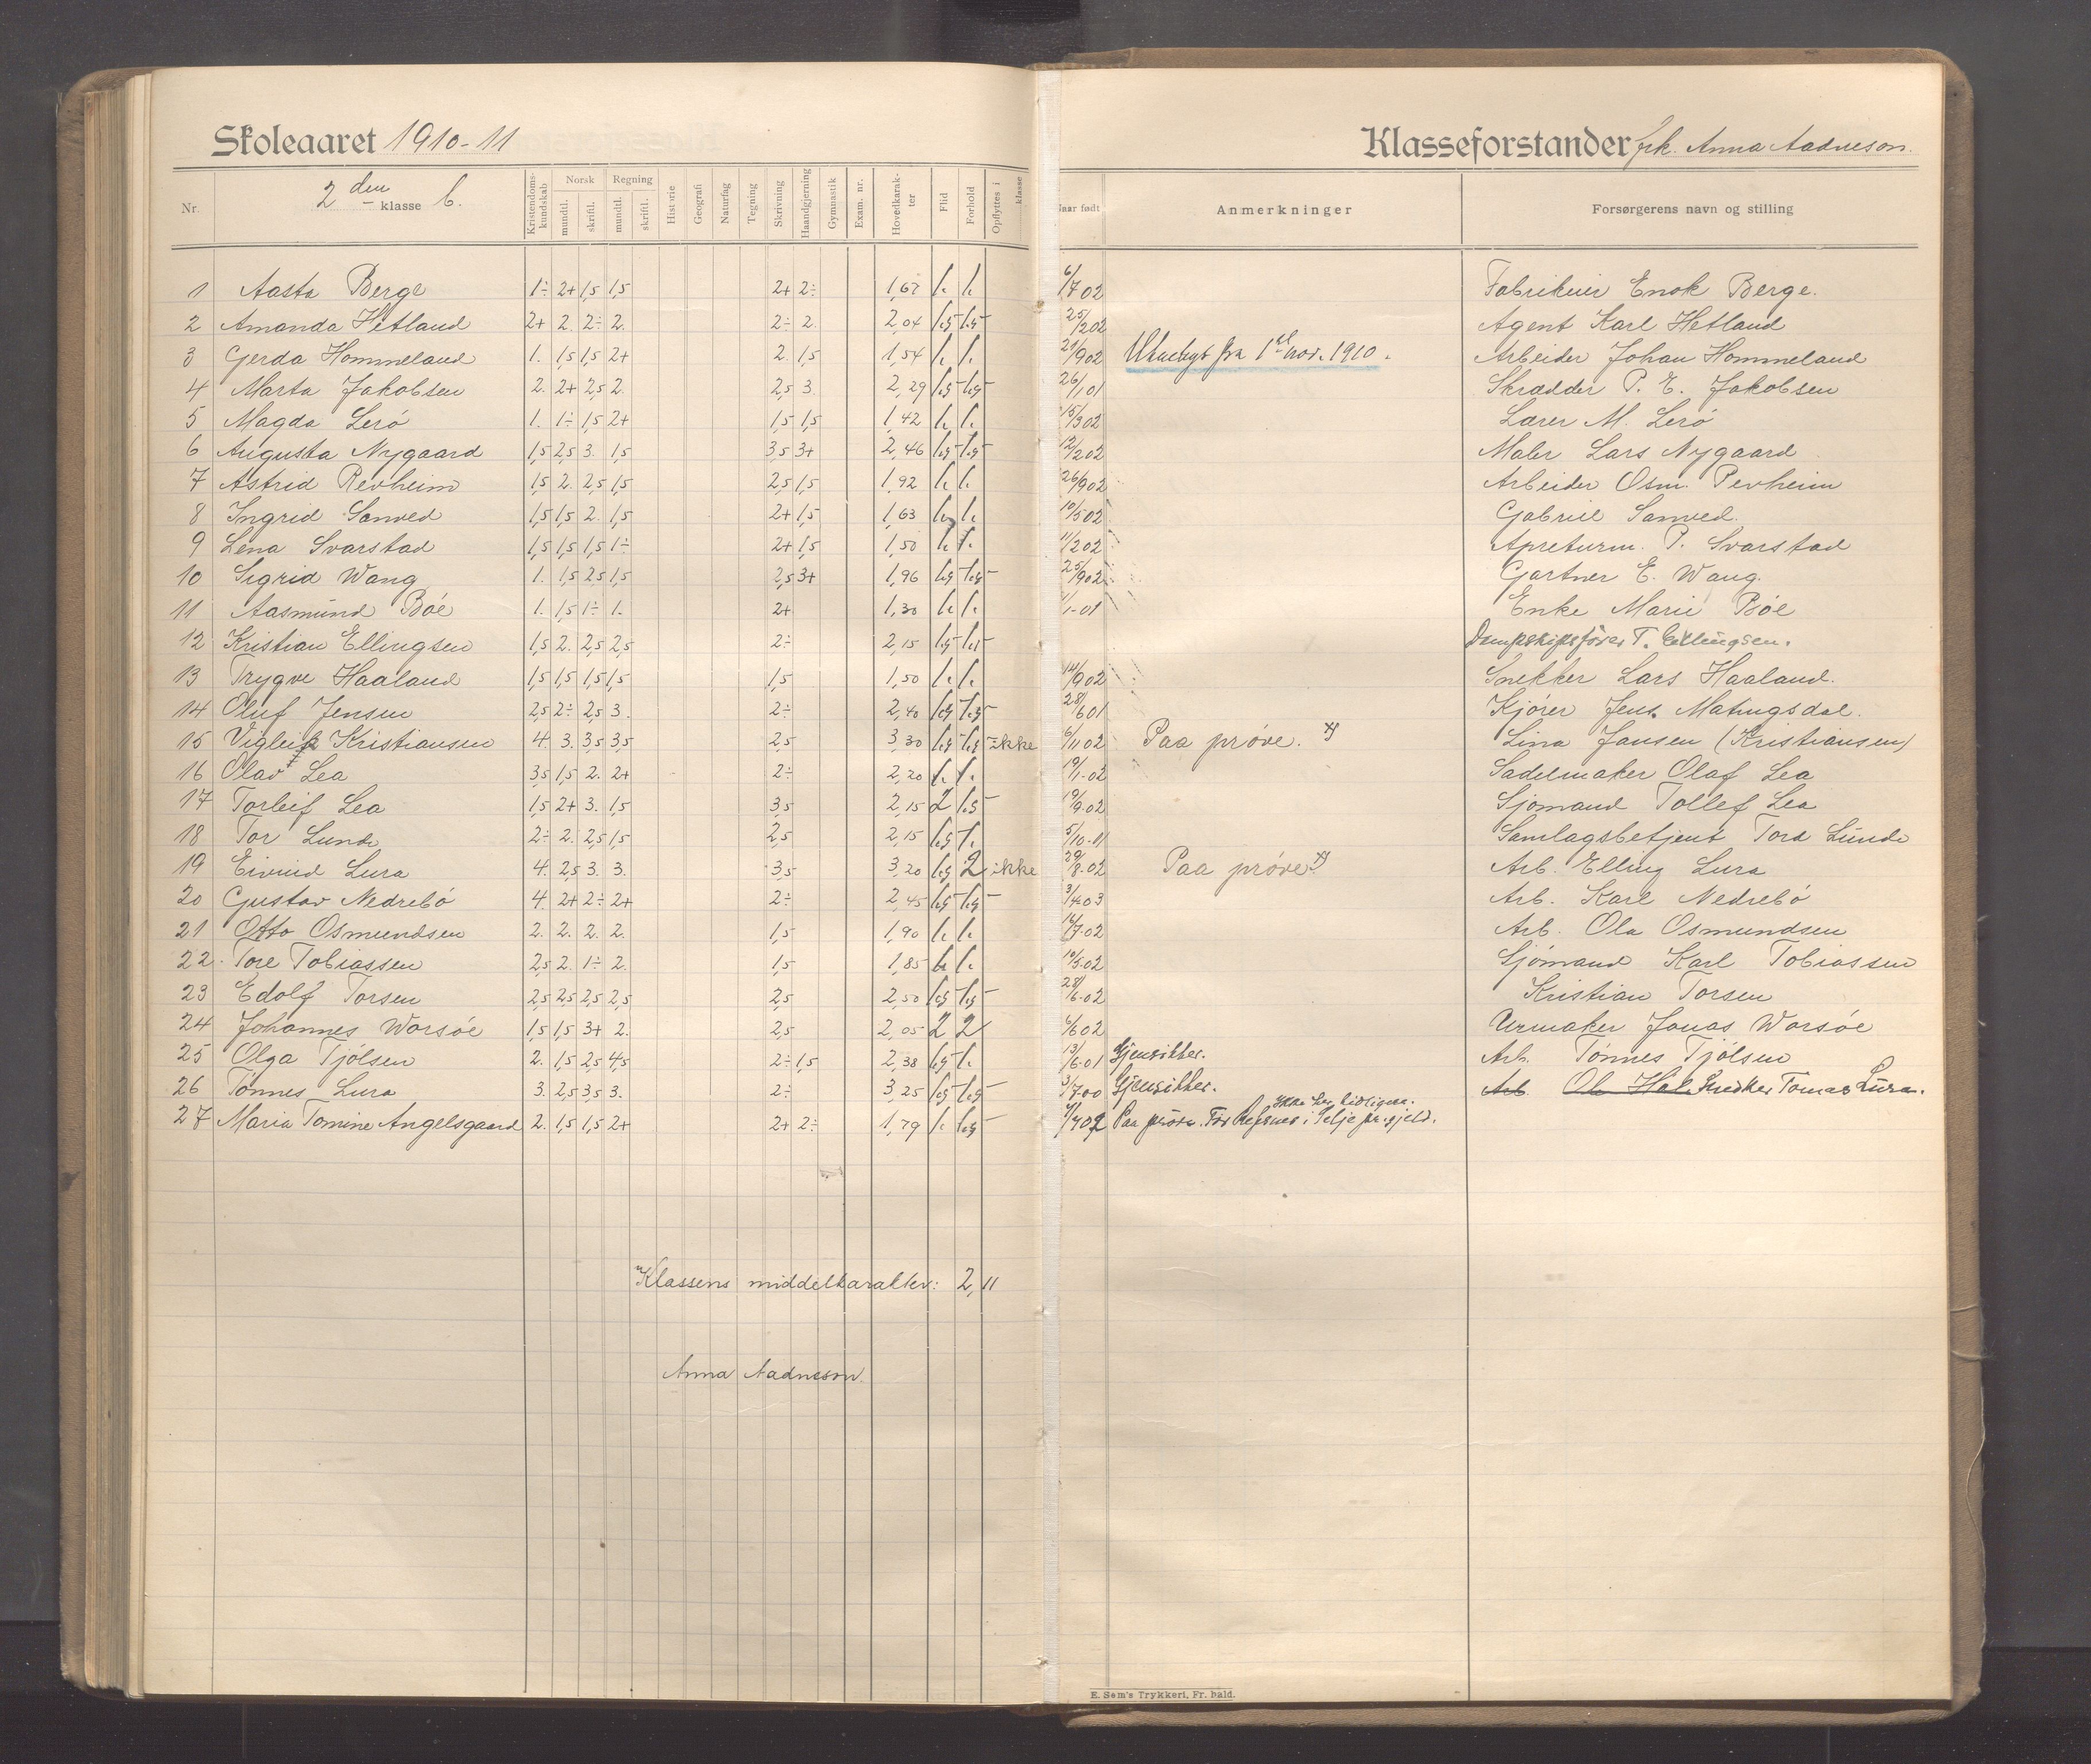 Skoleaaret 1910-11
Klasseforstander frk. Anna Aadneson.
Nr. 2den klasse b. Kristendomskundskab Norsk mundtl. skriftl. Regning mundtl. skriftl. Historie Geografi Naturfag Tegning Skrivning Haandgjerning Gymnastik Exam. nr. Hovedkarakter Flid Forhold Opflyttes i klasse Naar født Anmerkninger Forsørgerens navn og stilling
1 Aasta Berge 1÷ 2+ 1,5 1,5 2+ 2÷ 1,67 6/7 02 Enok Berge.
2 Amanda Hetland 2+ 2. 2÷ 2. 2÷ 2. 2,04 25/2 02 Agent Karl Hetland
3 Gerda Hommeland 1. 1,5 1,5 2+ 2. 1,5 1,54 21/9 02 fra 1ste nov. 1910. Arbeider Johan Hommeland
4 Marta Jakobsen 2. 2+ 2,5 2. 2,5 3. 2,29 26/1 01 Skrædder P. E. Jakobsen
5 Magda Lerø 1. 1÷ 1,5 2+ 1,5 1,5 1,42 15/3 02 Lærer M. Lerø
6 Augusta Nygaard 1,5 2,5 3. 1,5 3,5 3+ 2,46 12/2 02 Maler Lars Nygaard
7 Astrid Revheim 1,5 2. 2,5 1,5 2,5 1,5 1,92 26/9 02 Arbeider Osm. Revheim
8 Ingrid Sanved 1,5 1,5 2. 1,5 2+ 1,5 1,63 10/5 02 Gabriel Sanved.
9 Lena Svarstad 1,5 1,5 1,5 1÷ 2+ 1,5 1,50 11/2 02 Apreturm. P. Svarstad
10 Sigrid Wang 1. 1,5 2,5 1,5 2,5 3+ 1,96 25/9 02 Gartner E. Wang.
11 Aasmund Bøe 1. 1,5 1÷ 1. 2+ 1,30 Enke Marie Bøe
12 Kristian Ellingsen 1,5 2. 2,5 2,5 2÷ 2,15 Dampskipsfører T. Ellingsen.
13 Trygve Haaland 1,5 1,5 1,5 1,5 1,5 1,50 14/9 02 Snekker Lars Haaland.
14 Oluf Jensen 2,5 2÷ 2,5 3. 2÷ 2,40 28/6 01 Kjører Jens Matingsdal.
15 Vigleik Kristiansen 4. 3. 3,5 3,5 2,5 3,30 ikke 6/11 02 Paa prøve. Lina Jansen (Kristiansen)
16 Olav Lea 3,5 1,5 2. 2+ 2÷ 2,20 19/1-02 Sadelmaker Olaf Lea
17 Torleif Lea 1,5 2+ 3. 1,5 3,5 2,15 2 19/9-02 Sjømand Tollef Lea
18 Tor Lunde 2÷ 2. 2,5 1,5 2,5 2,15 5/10-01 Samlagsbetjent Tord Lunde
19 Eivind Lura 4. 2,5 3. 3. 3,5 3,20 2 ikke 29/8-02 Paa prøve. Arb. Elling Lura
20 Gustav Nedrebø 4. 2+ 2÷ 2+ 2÷ 2,45 Arb. Karl Nedrebø
21 Otto Osmundsen 2. 2. 2. 2. 1,5 1,90 16/7-02 Arb. Ola Osmundsen
22. Tore Tobiassen 2,5 2. 1÷ 2. 1,5 1,85 10/5-02 Sjømand Karl Tobiassen
23 Edolf Torsen 2,5 2,5 2,5 2,5 2,5 2,50 28/6-02 Kristian Torsen
24 Johannes Worsøe 1,5 1,5 3+ 2. 2,5 2,05 2 2 6/6 02 Urmaker Jonas Worsøe
25 Olga Tjølsen 2. 1,5 2,5 4,5 2÷ 1,5 2,38 13/6-01 Gjensitter. Arb. Tønnes Tjølsen
26 Tønnes Lura 3. 2,5 3,5 3. 2÷ 3,25 3/7-00 Gjensitter. Arb. Snekker Tomas Lura.
27 Maria Tomine Angelsgaard 2. 1,5 1,5 2+ 2+ 2÷ 1,79 Paa prøve. Før Refsnes i Selje pr.gjeld.
Klassens middelkarakter: 2,11
Anna Aadneson.
E. Sem's Trykkeri, Fr.hald.